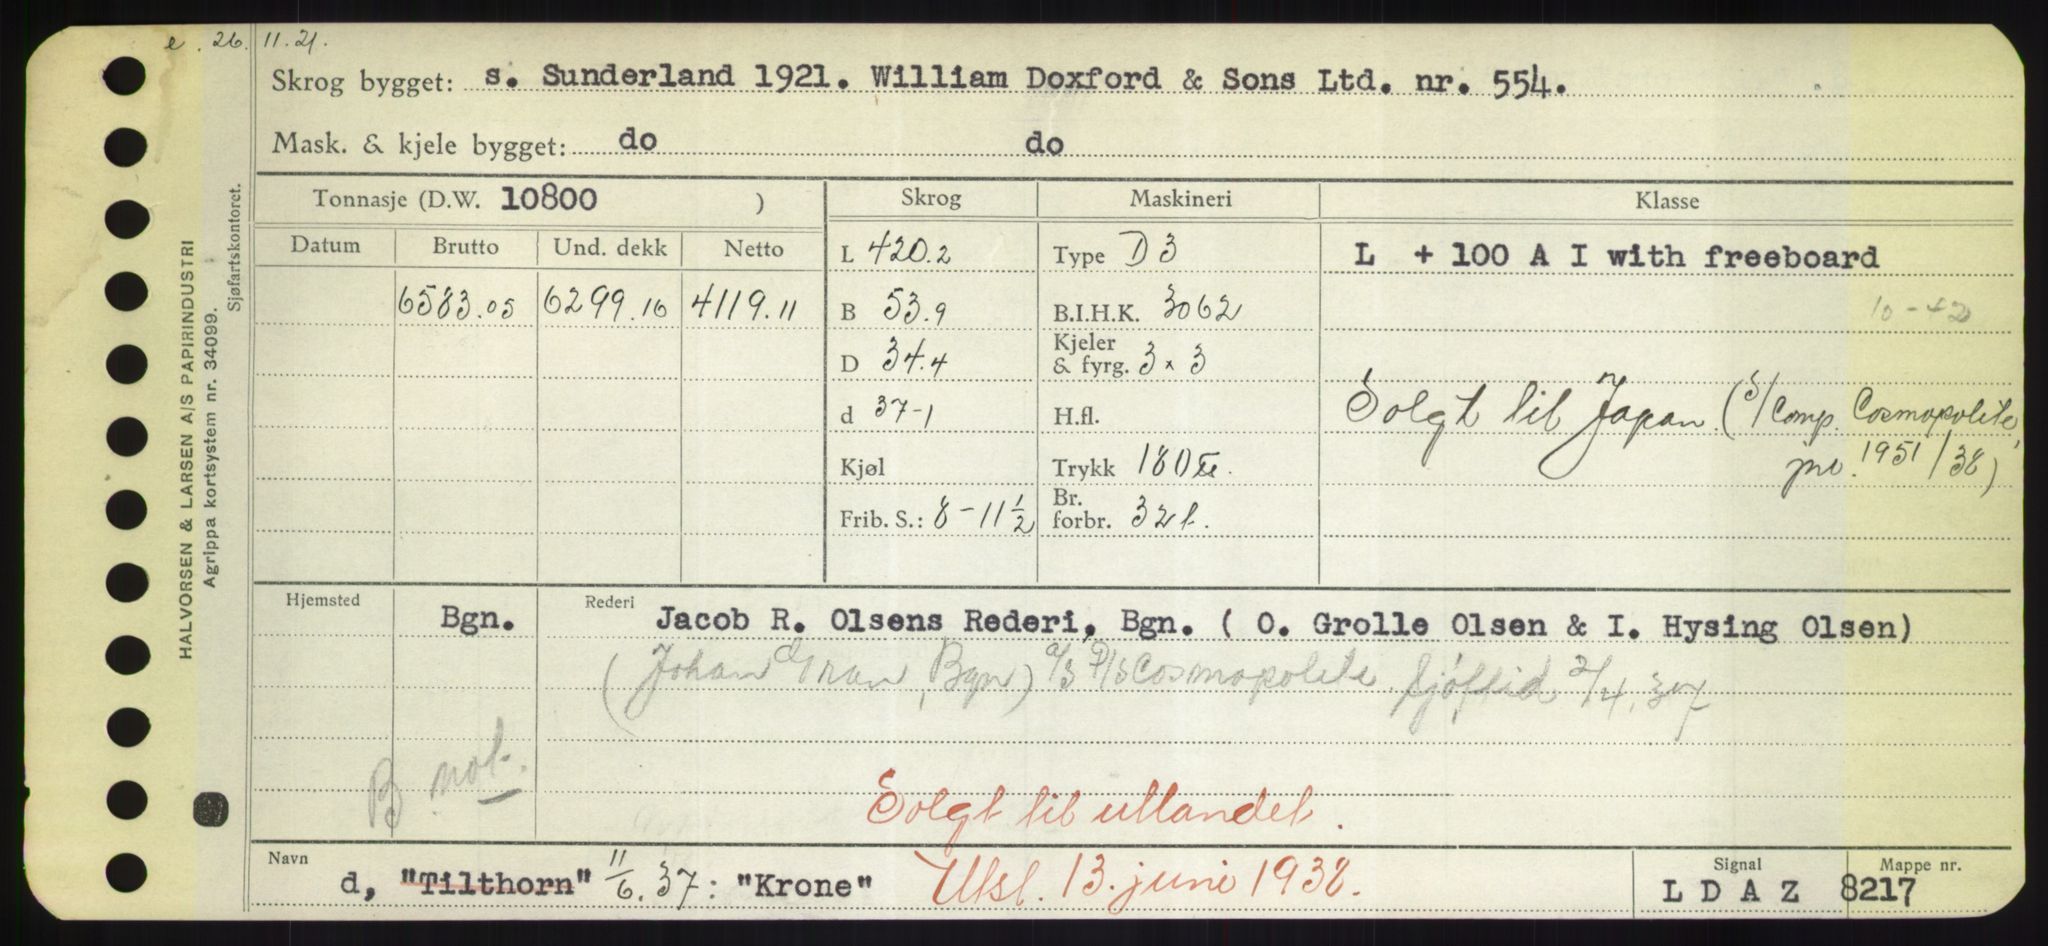 e. 26. 11. 21.
Skrog bygget: s. Sunderland 1921. William Doxford & Sons Ltd. nr. 554.
Mask. & kjele bygget: do do
Tonnasje (D.W. 10800 ) Skrog Maskineri Klasse
Datum Brutto Und. dekk Netto L 420.2 Type D 3 L + 100 A I with freeboard
6583.05 6299.16 4119.11 B 53.9 B.I.H.K. 3062 10-42
D 34.4 Kjeler & fyrg. 3 x 3
d 37-1 H.fl. Solgt til Japan (S/Comp. Cosmopolite,
Kjøl Trykk 180 jnr. 1951/38)
Frib. S.: 8-11 1/2 Br. forbr. 32 t.
Hjemsted Bgn. Rederi Jacob R. Olsens Rederi, Bgn. ( O. Grolle Olsen & I. Hysing Olsen)
(Johan Gran, Bgn) a/s D/S Cosmopolite Sjøftid 2/4.37
B not.
Solgt til utlandet.
Navn d, "Tilthorn" 11/6.37: "Krone" Utsl. 13. juni 1938. Signal L D A Z Mappe nr. 8217
HALVORSEN & LARSEN A/S PAPIRINDUSTRI
Agrippa kortsystem nr. 34099.
Sjøfartskontoret.